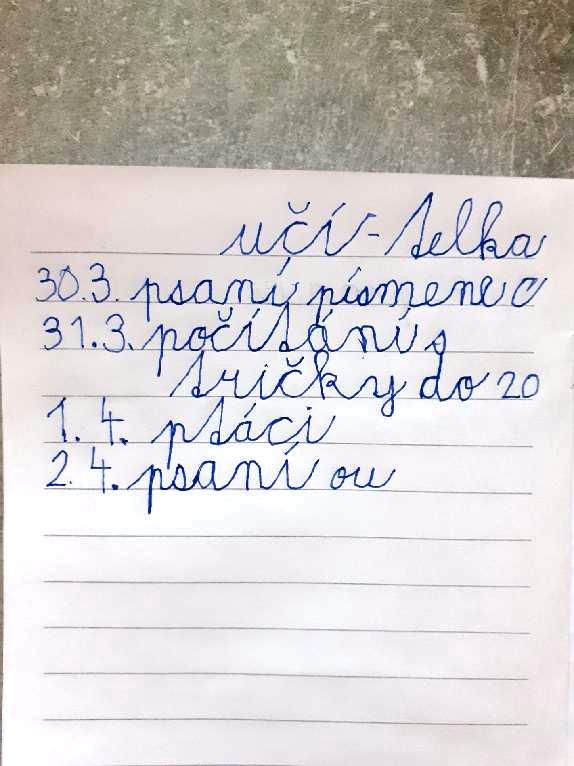 učí-telka
30.3. psaní písmene c
31.3. počítání s
tričky do 20
1. 4. ptáci
2. 4. psaní ou